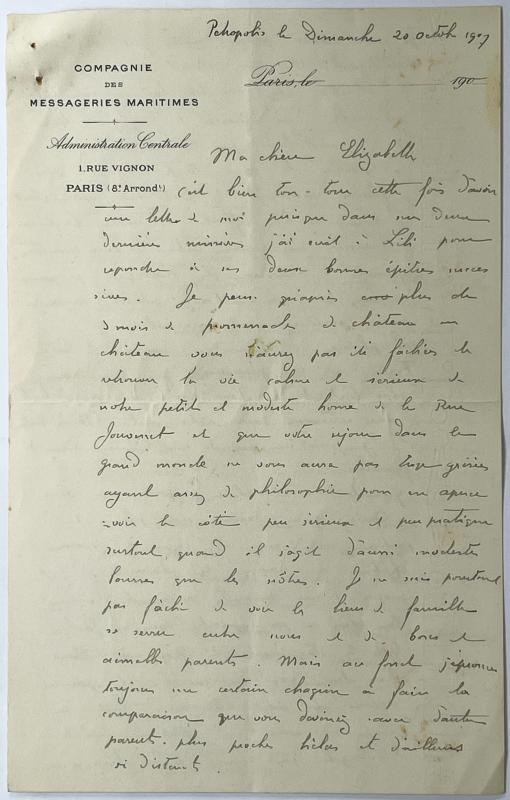 Petropolis le Dimanche 20 Octob 1907
COMPAGNIE
DES
MESSAGERIES MARITIMES
Paris, le 190
Administration Centrale
1, RUE VIGNON
PARIS (8e Arrondt)
Ma chère Elizabeth
C'est bien ton tour cette fois d'avoir
une lettre de moi puisque dans mes deux
dernières missives j'ai écrit à Lili pour
repondre à ses deux bonnes épitres succes
sives. Je pense qu'après plus de
3 mois de promenades de château en
château vous n'aurez pas été fâchées de
retrouver la vie calme et sérieuse de
notre petit et modeste home de la Rue
Jouvenet et que votre séjour dans le
grand monde ne vous aura pas trop grisées
ayant assez de philosophie pour en aperce
voir le côté peu sérieux et peu pratique
surtout quand il s'agit d'aussi modestes
bourses que les nôtres. Je ne suis pourtant
pas fâché de voir les liens de famille
se serrer entre nous et de bons et
aimables parents. Mais au fond j'éprouve
toujours un certain chagrin à faire la
comparaison que vous devinez avec d'autres
parents plus proches hélas et d'ailleurs
si distants.